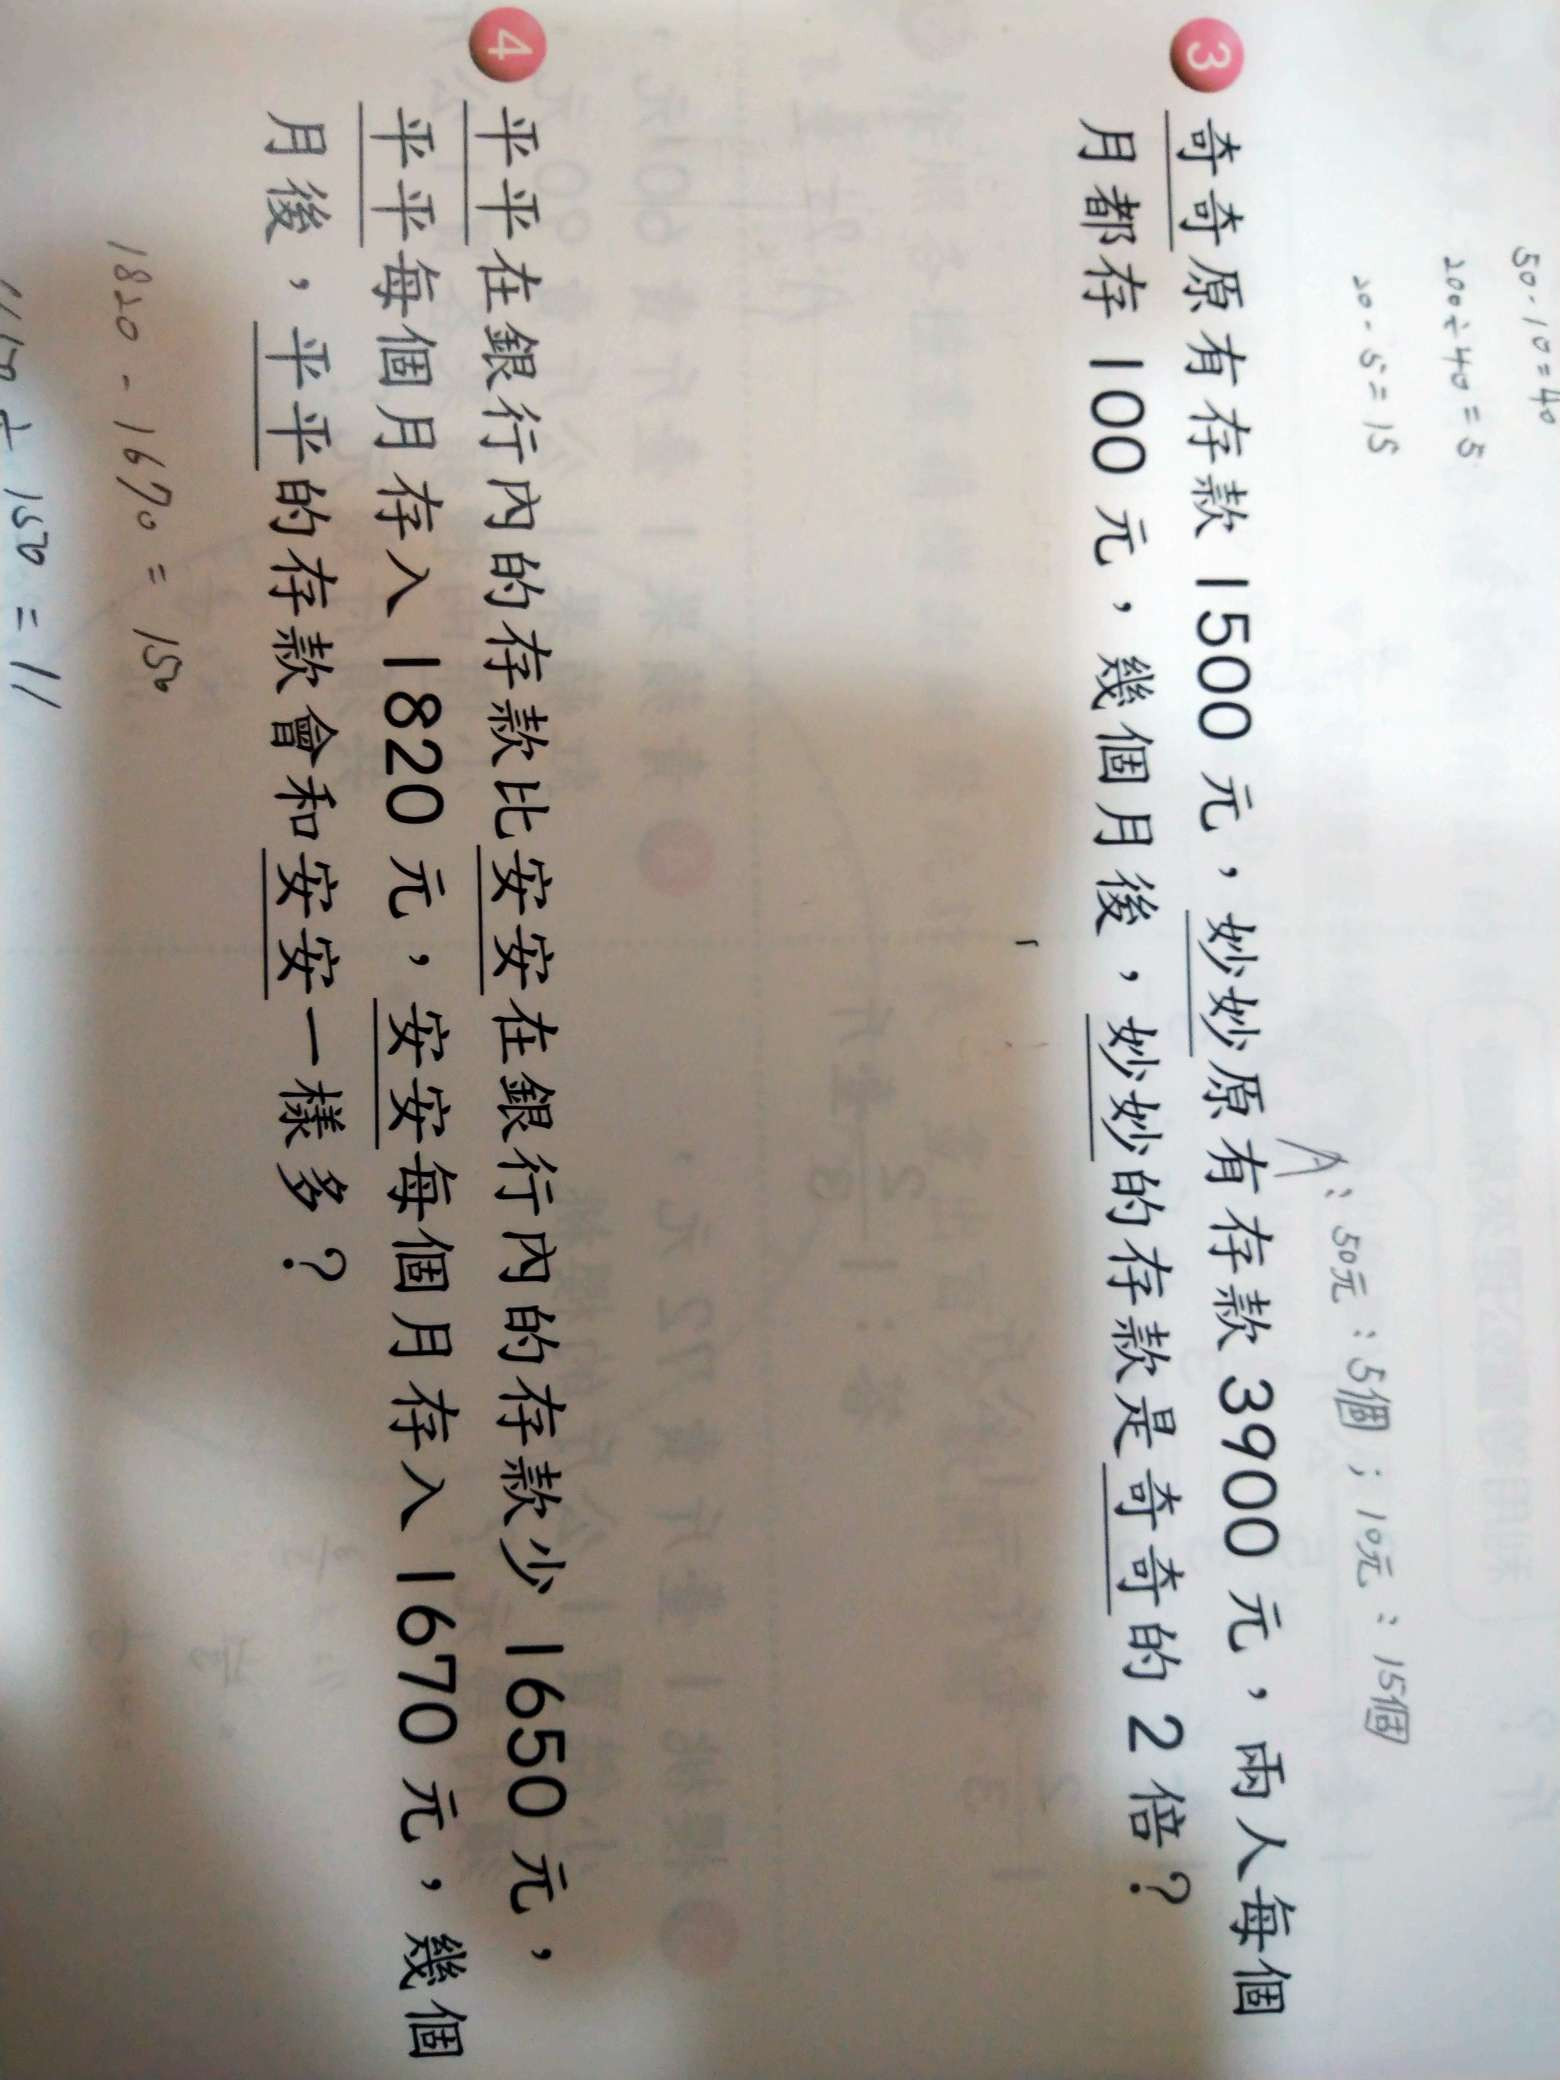 50-10=40
200÷40=5
20-5=15
A：50元：5個；10元：15個
3 奇奇原有存款1500元，妙妙原有存款3900元，兩人每個
月都存100元，幾個月後，妙妙的存款是奇奇的2倍？
4 平平在銀行內的存款比安安在銀行內的存款少1650元，
平平每個月存入1820元，安安每個月存入1670元，幾個
月後，平平的存款會和安安一樣多？
1820-1670=150
÷150=11